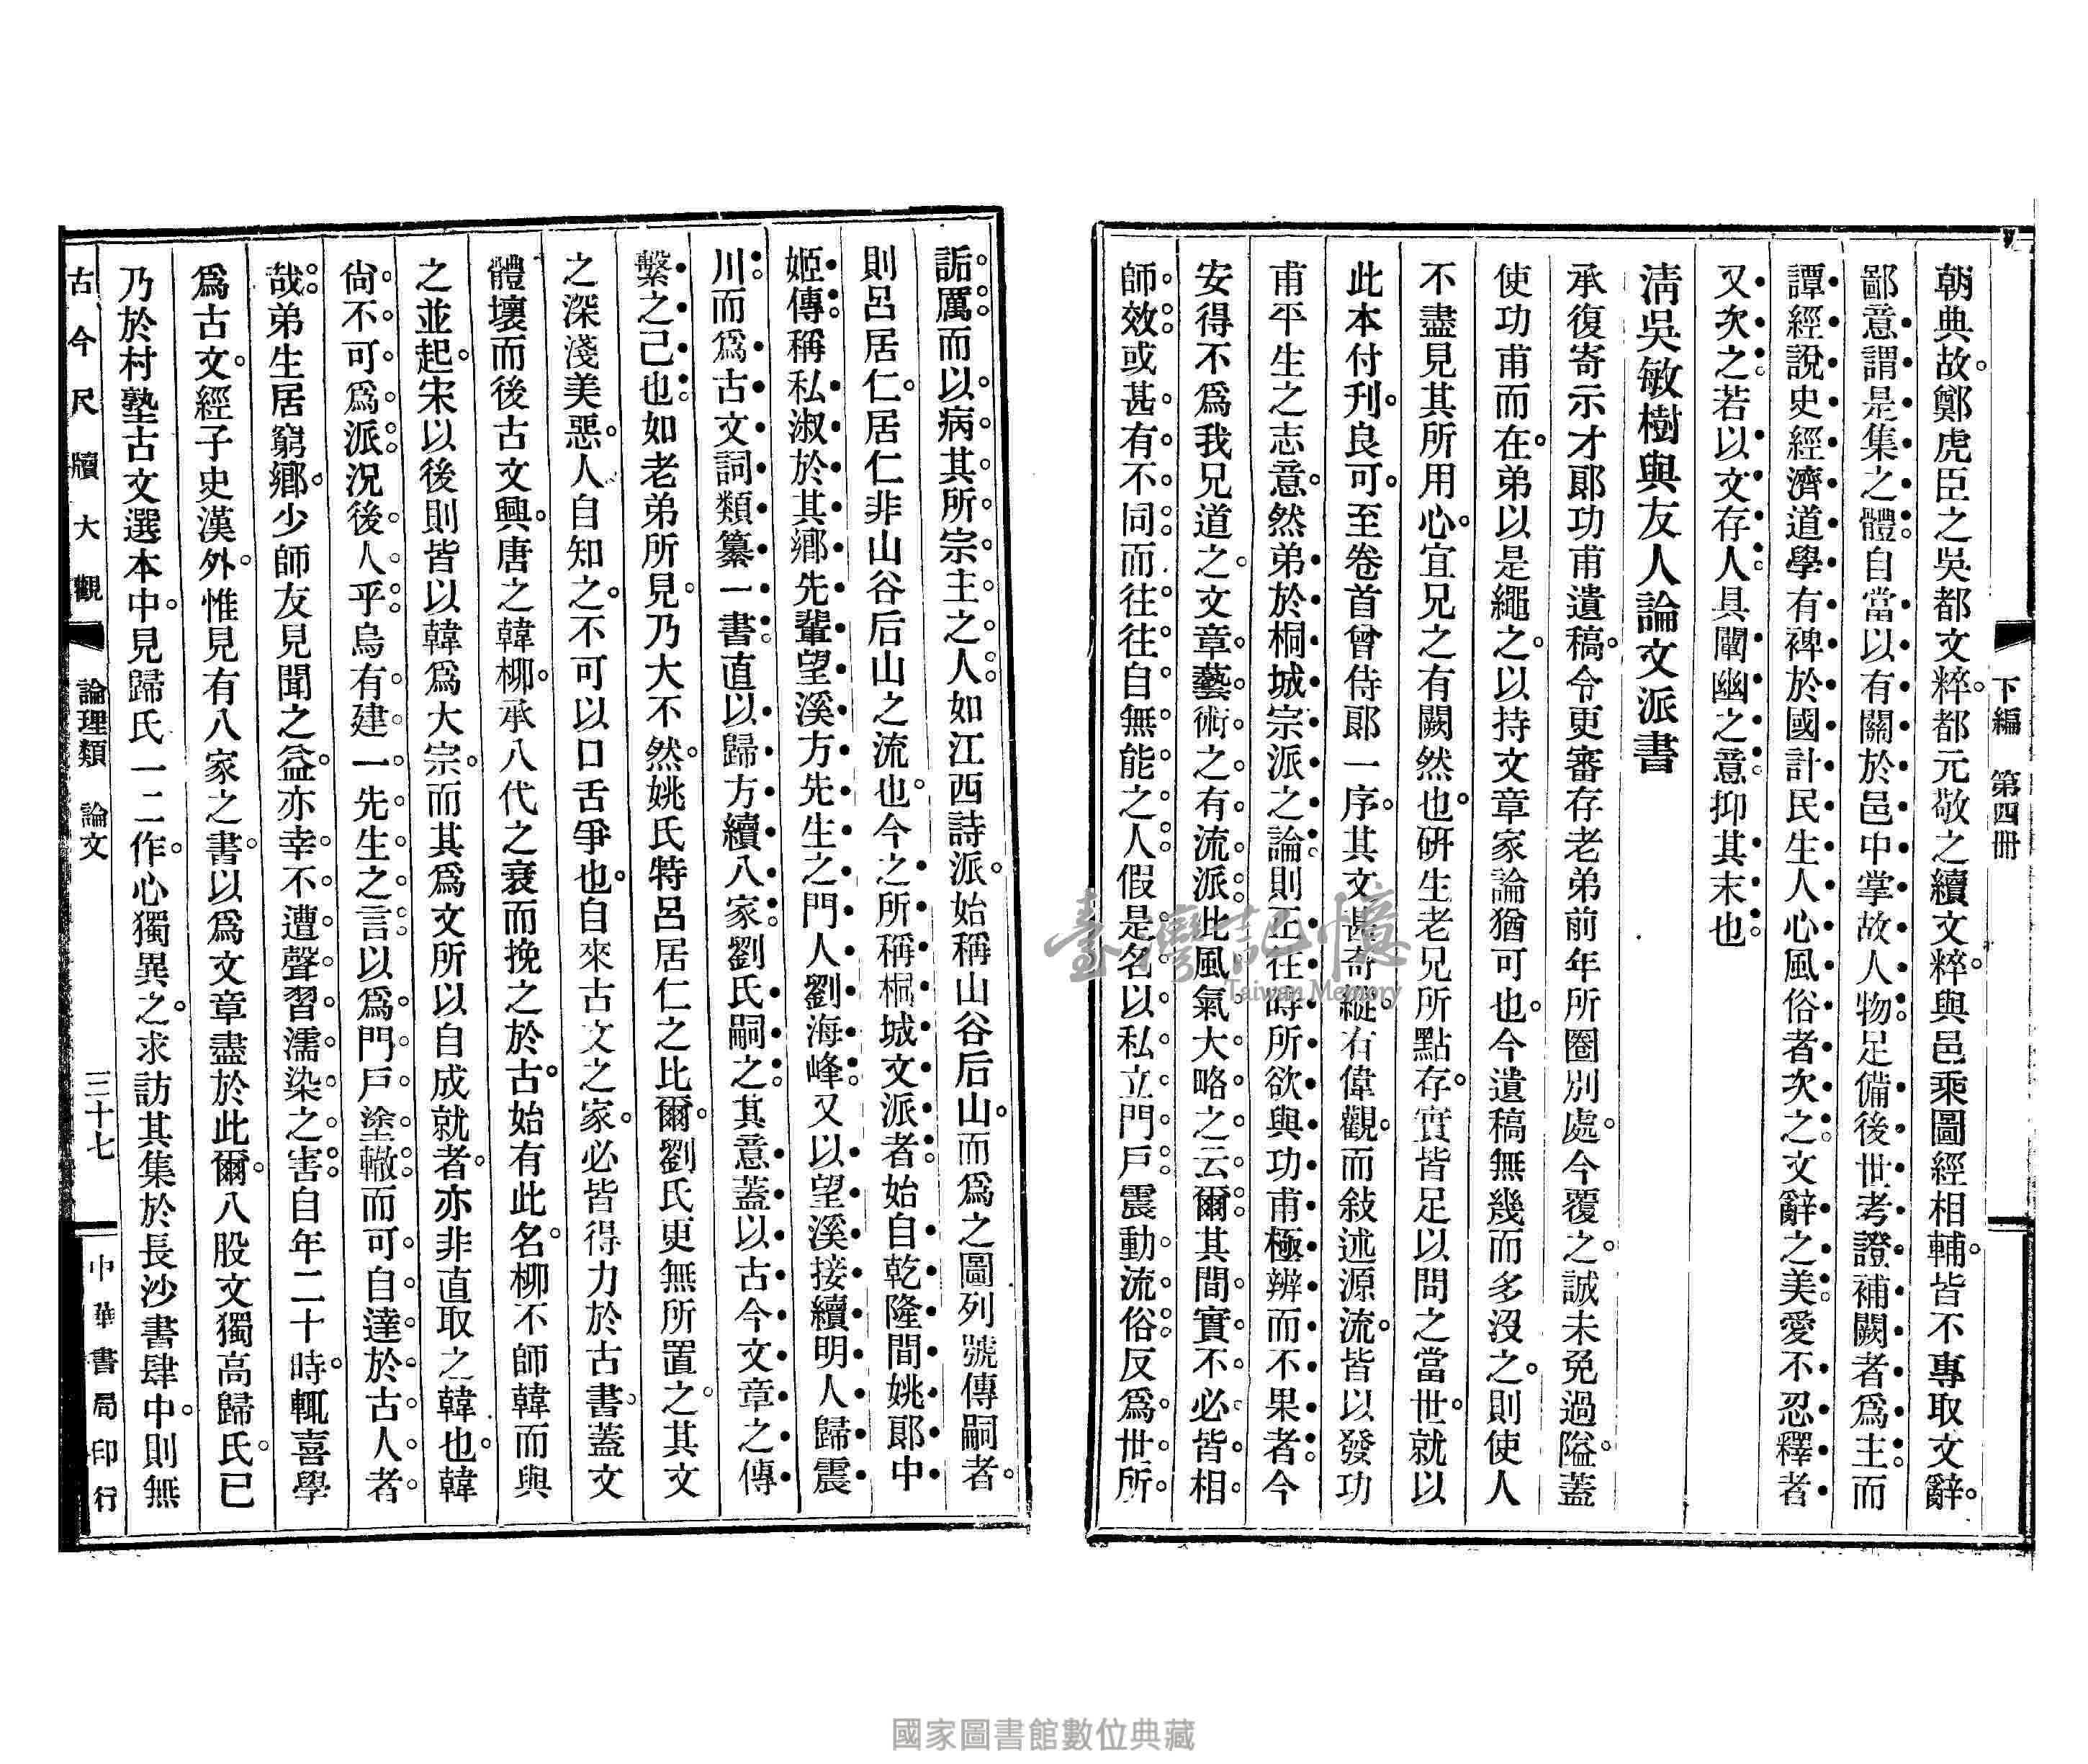 下編 第四冊
朝典故。鄭虎臣之吳都文粹。都元敬之續文粹。與邑乘圖經相輔。皆不專取文辭。
鄙意謂是集之體。自當以有關於邑中掌故人物。足備後世考證補闕者爲主。而
譚經說史經濟道學有裨於國計民生人心風俗者次之。文辭之美愛不忍釋者
又次之。若以文存人。具闡幽之意。抑其末也。
清吳敏樹與友人論文派書
承復寄示才郎功甫遺稿。令更審存老弟前年所圈別處。今覆之。誠未免過隘。蓋
使功甫而在。弟以是繩之。以持文章家論猶可也。今遺稿無幾而多沒之。則使人
不盡見其所用心。宜兄之有闕然也。研生老兄所點存。實皆足以問之當世。就以
此本付刋。良可。至卷首曾侍郎一序。其文甚奇縱。有偉觀。而敍述源流。皆以發功
甫平生之志意。然弟於桐城宗派之論。則正往時所欲與功甫極辨而不果者。今
安得不爲我兄道之。文章藝術之有流派。此風氣大略之云爾。其間實不必皆相
師效。或甚有不同。而往往自無能之人。假是名以私立門戶。震動流俗。反爲世所
詬厲。而以病其所宗主之人。如江西詩派。始稱山谷后山。而爲之圖列號傳嗣者。
則呂居仁。居仁非山谷后山之流也。今之所稱桐城文派者。始自乾隆間姚郎中
姬傳。稱私淑於其鄉先輩望溪方先生之門人劉海峰。又以望溪接續明人歸震
川。而爲古文詞類纂一書。直以歸方續八家。劉氏嗣之。其意蓋以古今文章之傳
繫之己也。如老弟所見。乃大不然。姚氏特呂居仁之比爾。劉氏更無所置之。其文
之深淺美惡。人自知之。不可以口舌爭也。自來古文之家。必皆得力於古書。蓋文
體壞而後古文興。唐之韓柳。承八代之衰而挽之於古。始有此名。柳不師韓而與
之並起。宋以後則皆以韓爲大宗。而其爲文所以自成就者。亦非直取之韓也。韓
尙不可爲派。況後人乎。烏有建一先生之言。以爲門戶塗轍。而可自達於古人者
哉。弟生居窮鄉。少師友見聞之益。亦幸不遭聲習濡染之害。自年二十時。輒喜學
爲古文。經子史漢外。惟見有八家之書。以爲文章盡於此爾。八股文獨高歸氏。已
乃於村塾古文選本中。見歸氏一二作。心獨異之。求訪其集於長沙書肆中。則無
古今尺牘大觀 論理類 論文 三十七 中華書局印行
臺灣記憶
Taiwan Memory
國家圖書館數位典藏